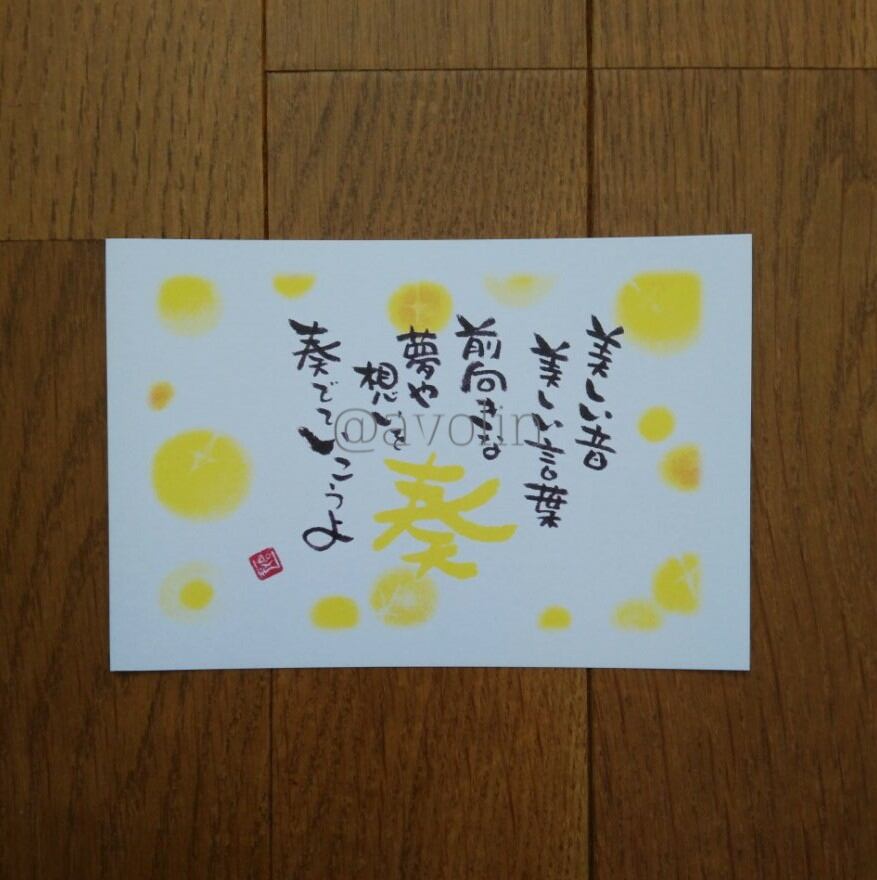 美しい音
美しい言葉
前向きな
夢や
想いを
奏
奏でていこうよ
@avolin